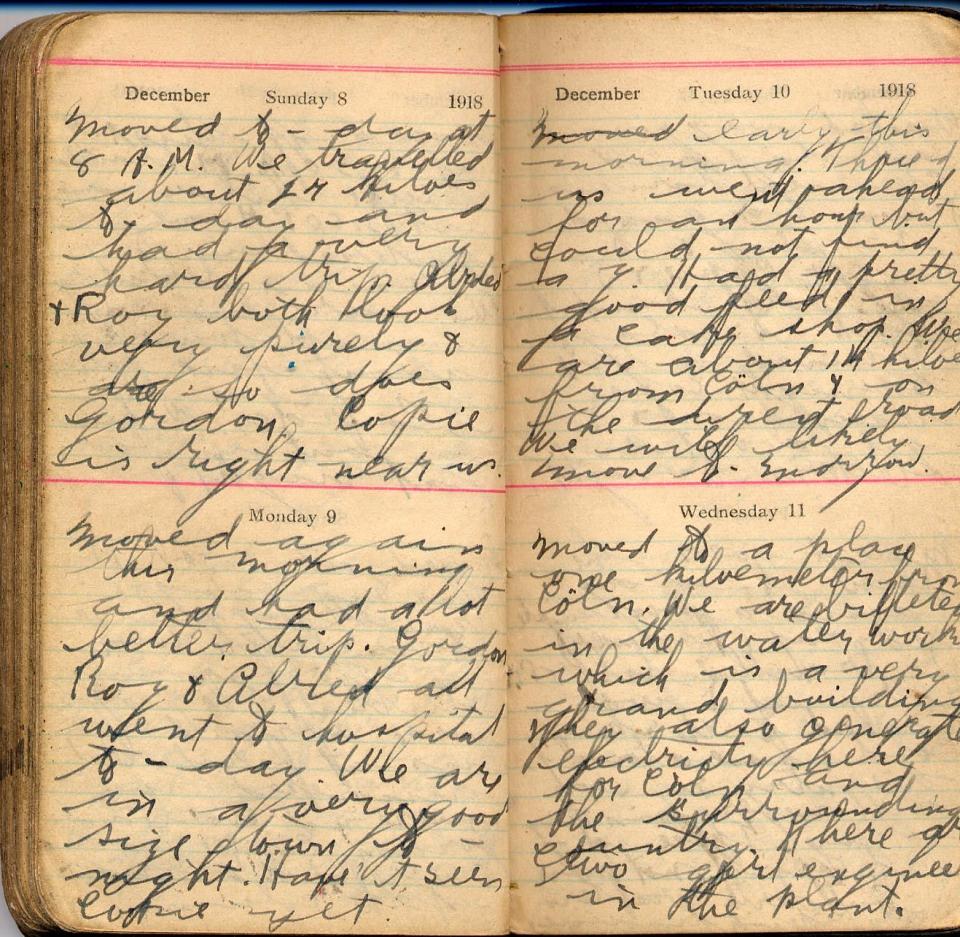 December Sunday 8 1918
Moved to-day at
8 A.M. We travelled
about 24 kiloes
to day and
had a very
hard trip. Alfred
& Roy both look
very purely &
so does
Gordon. Copie
is right near us.
Monday 9
Moved again
this morning
and had a lot
better trip. Gordon
Roy & Alfred all
went to hospital
to-day. We are
in a very good
size town to-
night. Haven't seen
Copie yet.
December Tuesday 10 1918
Moved early this
morning. Three of
us went ahead
for an hour but
could not find
a Y. Had a pretty
good feed in
a cake shop. We
are about 14 kiloe
from Cöln & on
the direct road
We will likely
move to-morrow.
Wednesday 11
Moved to a place
one kilvemeter from
Cöln. We are billeted
in the water works
which is a very
grand building
They also generate
electricity here
for Cöln and
the surrounding
country. There are
two girl engineers
in the plant.